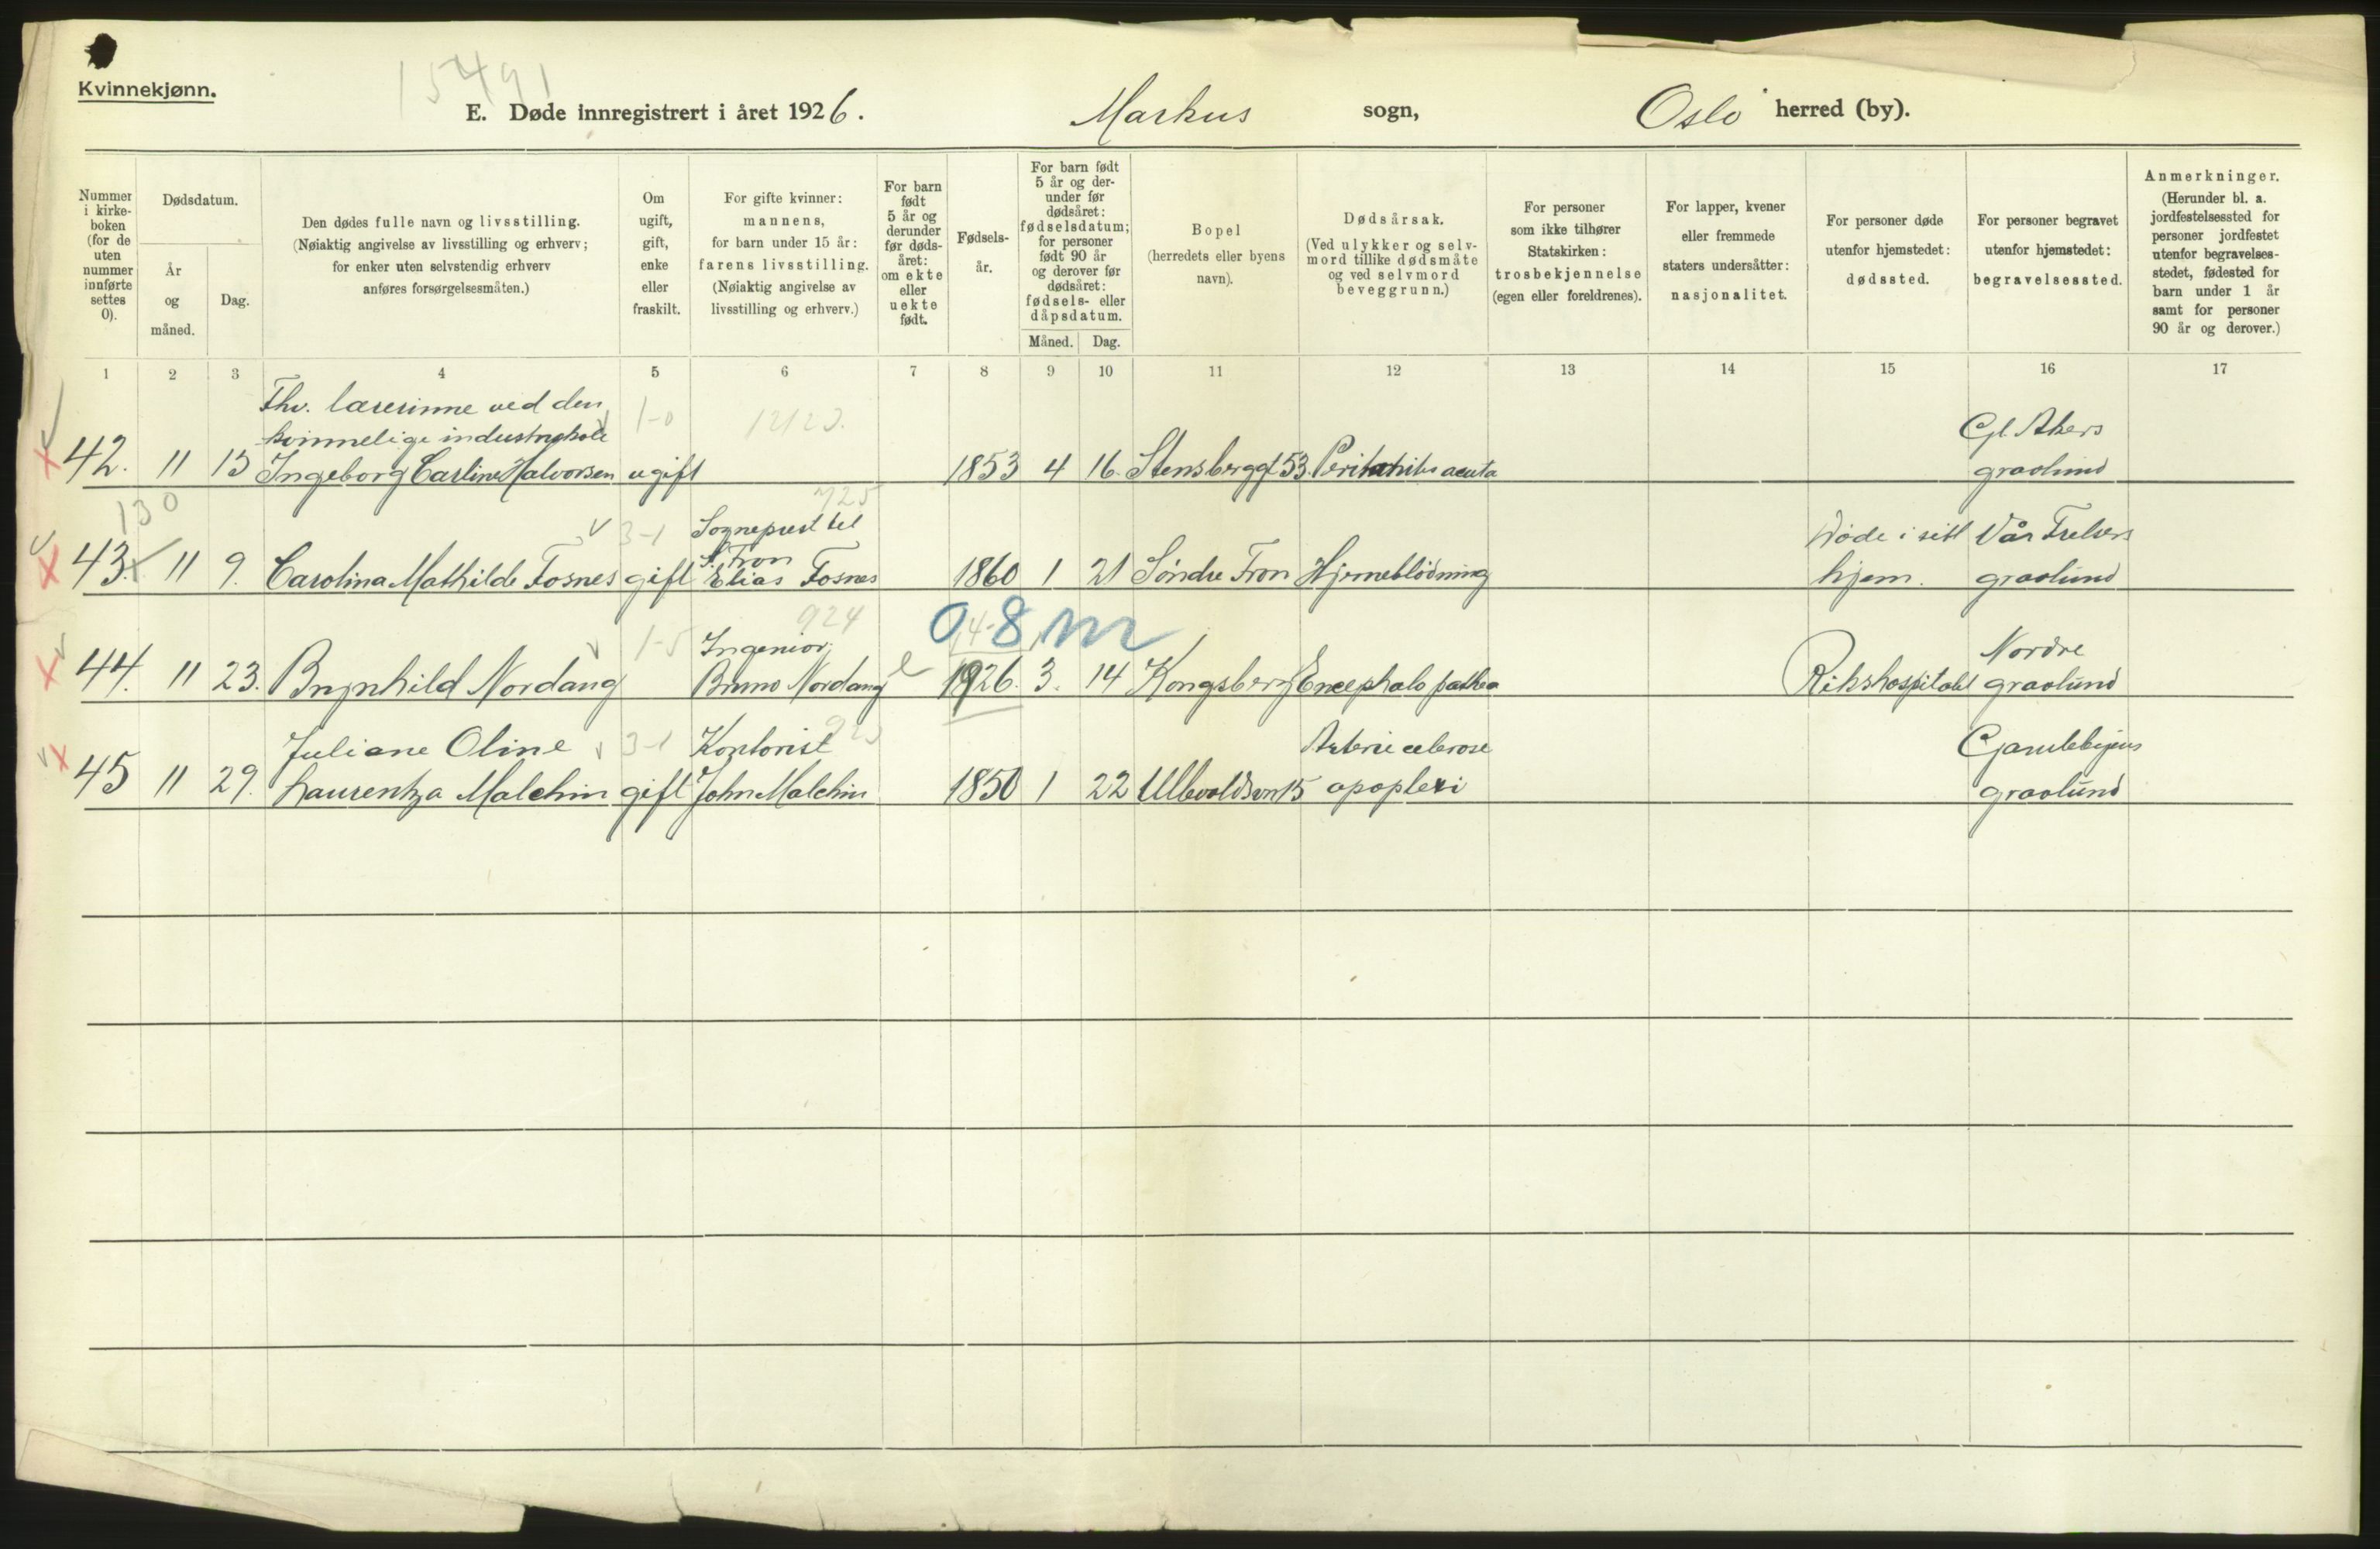 15491
Kvinnekjønn.
E. Døde innregistrert i året 1926. Markus sogn, Oslo herred (by).
Nummer i kirkeboken (for de uten nummer innførte settes 0).
Dødsdatum.
År og måned.
Dag.
Den dødes fulle navn og livsstilling.
(Nøiaktig angivelse av livsstilling og erhverv;
for enker uten selvstendig erhverv
anføres forsørgelsesmåten.)
Om ugift, gift, enke eller fraskilt.
For gifte kvinner:
mannens,
for barn under 15 år:
farens livsstilling.
(Nøiaktig angivelse av
livsstilling og erhverv.)
For barn født 5 år og derunder før dødsåret: om ekte eller uekte født.
Fødselsår.
For barn født 5 år og derunder før dødsåret: fødselsdatum; for personer født 90 år og derover før dødsåret: fødsels- eller dåpsdatum.
Måned. Dag.
Bopel
(herredets eller byens
navn).
Dødsårsak.
(Ved ulykker og selvmord tillike dødsmåte og ved selvmord beveggrunn.)
For personer
som ikke tilhører
Statskirken:
trosbekjennelse
(egen eller foreldrenes).
For lapper, kvener
eller fremmede
staters undersåtter:
nasjonalitet.
For personer døde
utenfor hjemstedet:
dødssted.
For personer begravet
utenfor hjemstedet:
begravelsessted.
Anmerkninger.
(Herunder bl. a. jordfestelsessted for personer jordfestet utenfor begravelsesstedet, fødested for barn under 1 år samt for personer 90 år og derover.)
1 2 3 4 5 6 7 8 9 10 11 12 13 14 15 16 17
Fhv. lærerinne ved den 1-0
kvinnelige industriskole Gl. Akers
42. 11 13 Ingeborg Carline Halvorsen ugift 1853 4 16. Stensberggt 53. Peritonitis acuta gravlund
130 725
3-1 Sogneprest til Døde i sitt Vår Frelsers
S. Fron
43. 11 9. Carolina Mathilde Fosnes gift Elias Fosnes 1860 1 21 Söndre Fron Hjerneblödning hjem. gravlund
924 0 8 m
1-5 Ingeniör Nordre
44. 11 23. Brynhild Nordang Bruno Nordang e 1926. 3. 14 Kongsberg Encephalo pathia Rikshospitalet gravlund
Juliane Oline 3-1 Kontorist Gamlebyens
45 11 29. Laurentza Malchin gift John Malchin 1850 1 22 Ullevoldsvn 15 apoplexi gravlund